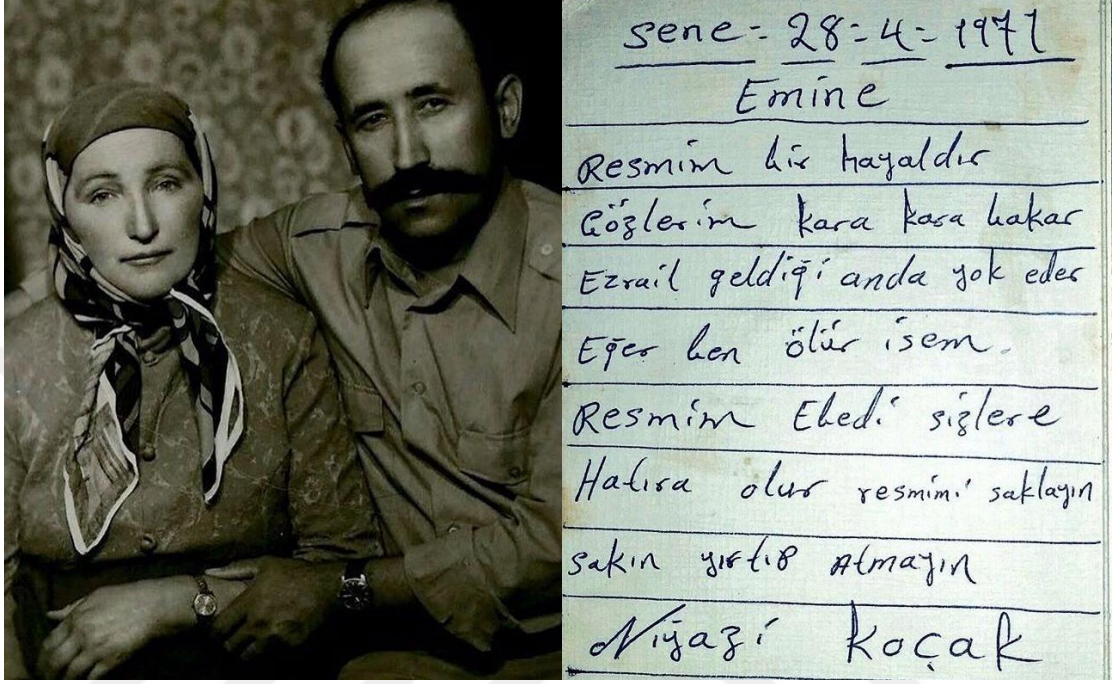 sene = 28 = 4 = 1971
Emine
Resmim bir hayaldır
Gözlerim kara kara bakar
Ezrail geldiği anda yok eder
Eğer ben ölür isem.
Resmim Ebedi sizlere
Hatıra olur resmimi saklayın
sakın yırtıp Atmayın
Niyazi Koçak